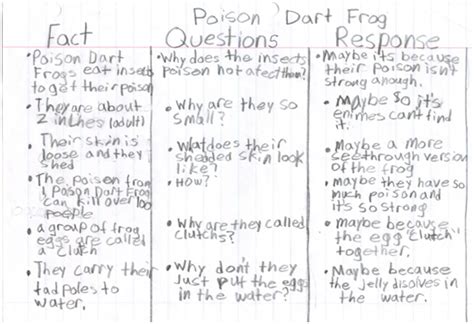 Poison Dart Frog
Fact
• Poison Dart
Frogs eat insects
to get their poison
• They are about
2 inches (adult)
• Their skin is
loose and they
shed
• The poison from
1 Poison Dart Frog
can kill over 100
people
• a group of frog
eggs are called
a clutch
• They carry their
tadpoles to
water.
Questions
• Why does the insects
poison not afect them?
• Why are they so
small?
• What does their
shedded skin look
like?
• How?
• Why are they called
clutchs?
• Why don't they
just put the eggs
in the water?
Response
• Maybe its because
their poison isn't
strong anough.
• Maybe so it's
enimes cant find
it.
• Maybe a more
seethrough version
of the frog
• maybe they have so
much poison and
it's so strong
• maybe because
the egg "clutch"
together.
• Maybe because
the jelly disolves in
the water.